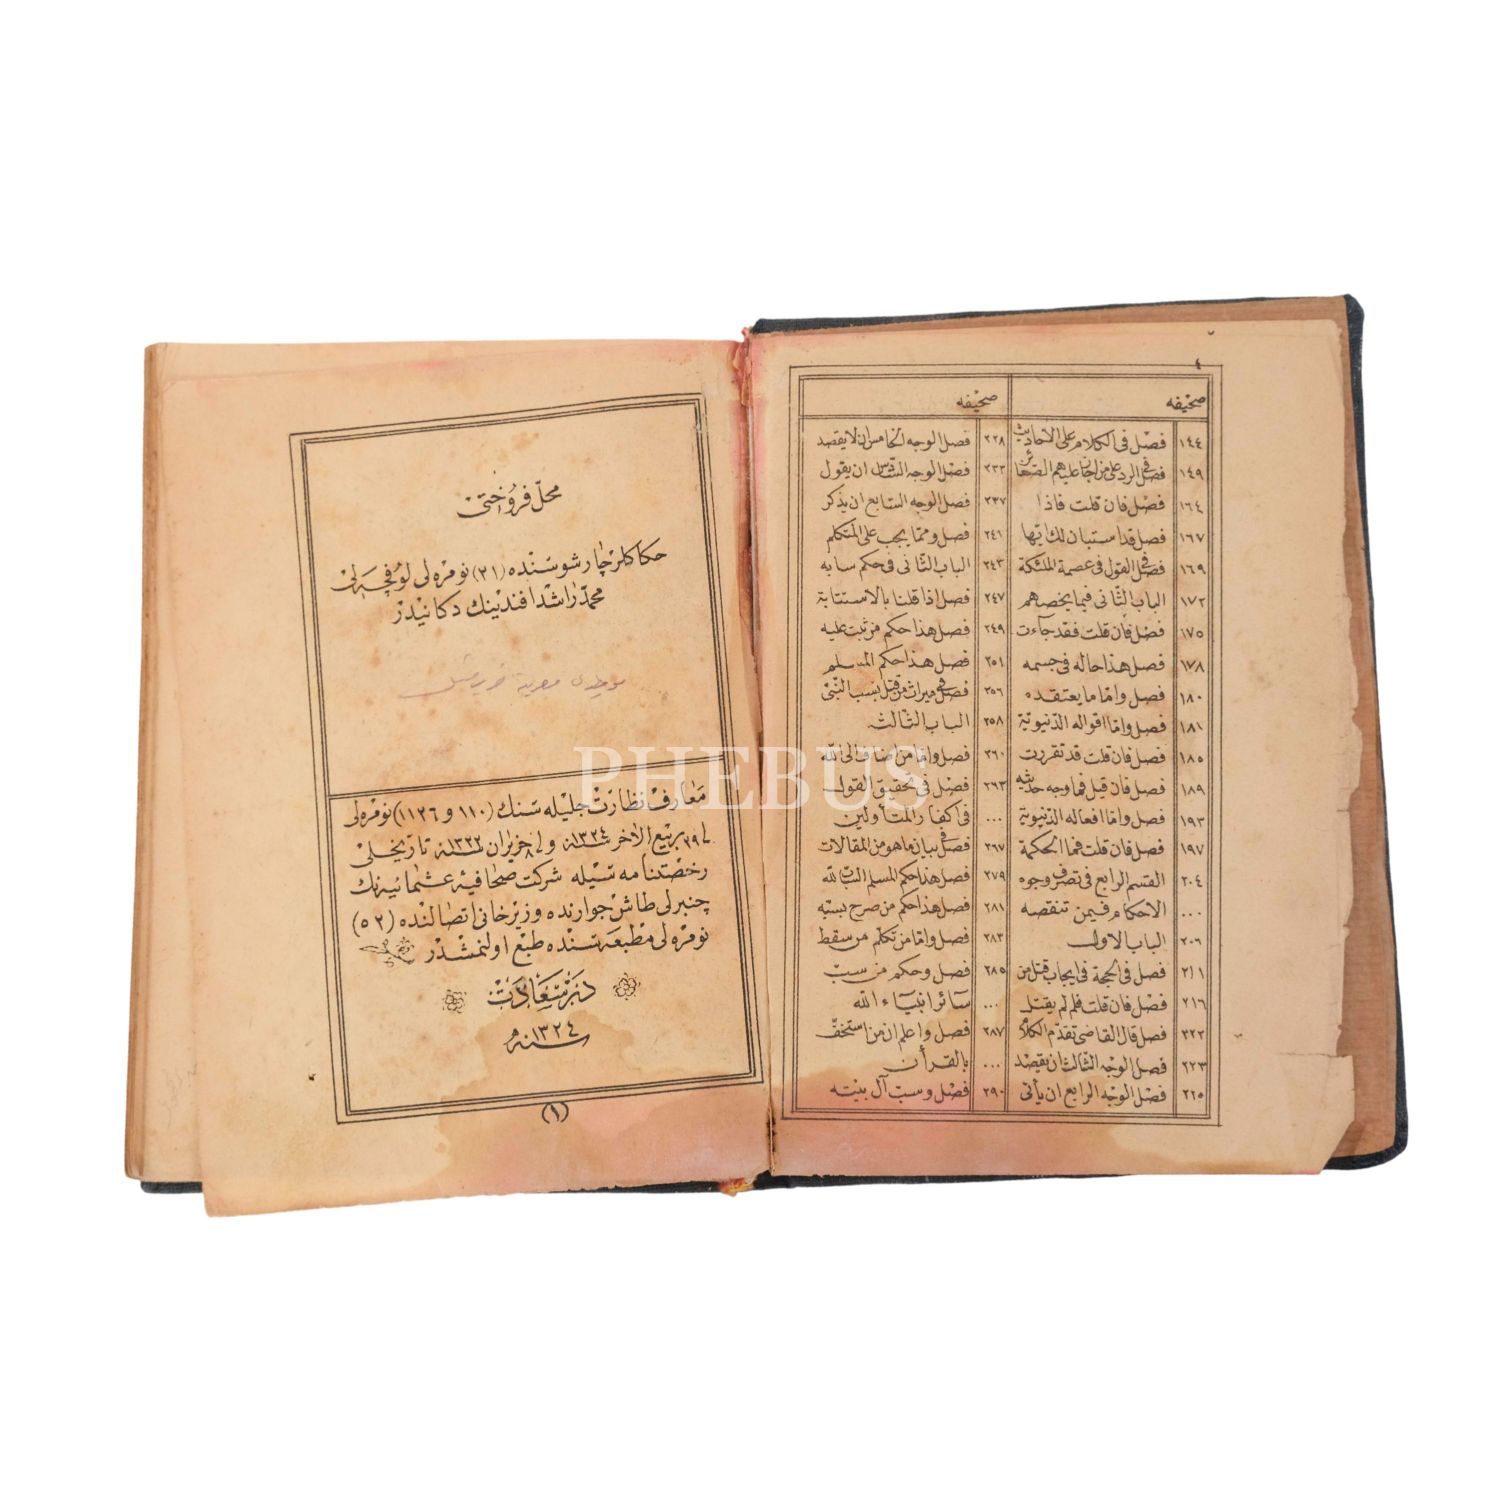 ٤
صحيفه
١٤٤ فصل فى الكلام على الاحاديث
١٤٩ فصل فى الرد على من اجاز عليهم الصغائر
١٦٤ فصل فان قلت فاذا
١٦٧ فصل قد استبان لك ايها
١٦٩ فصل فى القول فى عصمة الملئكة
١٧٢ الباب الثانى فيما يخصهم
١٧٥ فصل فان قلت فقد جآءت
١٧٨ فصل هذا حاله فى جسمه
١٨٠ فصل واما ما يعتقده
١٨١ فصل واما اقواله الدنيوية
١٨٥ فصل فان قلت قد تقررت
١٨٩ فصل فان قيل فما وجه حديثه
١٩٣ فصل واما افعاله الدنيوية
١٩٧ فصل فان قلت فما الحكمة
٢٠٤ القسم الرابع فى تصرف وجوه
... الاحكام فيمن تنقصه
٢٠٦ الباب الاول
٢١١ فصل فى الحجة فى ايجاب قتل من
٢١٦ فصل فان قلت فلم لم يقتل
٢٢٢ فصل قال القاضى تقدم الكلام
٢٢٣ فصل الوجه الثالث ان يقصد
٢٢٥ فصل الوجه الرابع ان يأتى
صحيفه
٢٢٨ فصل الوجه الخامس ان لا يقصد
٢٣٣ فصل الوجه السادس ان يقول
٢٣٧ فصل الوجه السابع ان يذكر
٢٤١ فصل ومما يجب على المتكلم
٢٤٣ الباب الثانى فى حكم سابه
٢٤٧ فصل اذا قلنا بالاستتابة
٢٤٩ فصل هذا حكم من ثبت عليه
٢٥١ فصل هذا حكم المسلم
٢٥٦ فصل فى ميراث من قتل بسب النبى
٢٥٨ الباب الثالث
٢٦٠ فصل واما من اضاف الى الله
٢٦٣ فصل فى تحقيق القول
... فى اكفار المتأولين
٢٦٧ فصل فى بيان ما هو من المقالات
٢٧٩ فصل هذا حكم المسلم الساب لله
٢٨١ فصل هذا حكم من صرح بسبه
٢٨٣ فصل واما من تكلم من سقط
٢٨٥ فصل وحكم من سب
... سائر انبيآء الله
٢٨٧ فصل واعلم ان من استخف
... بالقرأن
٢٩٠ فصل وسب آل بيته
محل فروختى
حكاكلر چارشوسنده (٢١) نومرهلى لوفچهلى
محمد راشد افندينك دكانيدر
معارف نظارت جليله سنك (١١٠ و ١١٢٦) نومرهلى
فى ٢٩ ربيع الاخر سنه ١٣٢٤ و فى ٨ حزيران سنه ١٣٢٢ تاريخلى
رخصتنامه سيله شركت صحافيه عثمانيه نك
چنبرلى طاش جوارنده وزيرخانى اتصالنده (٥٢)
نومرهلى مطبعه سنده طبع اولنمشدر
درسعادت
سنه ١٣٢٤
(١)
PHEBUS